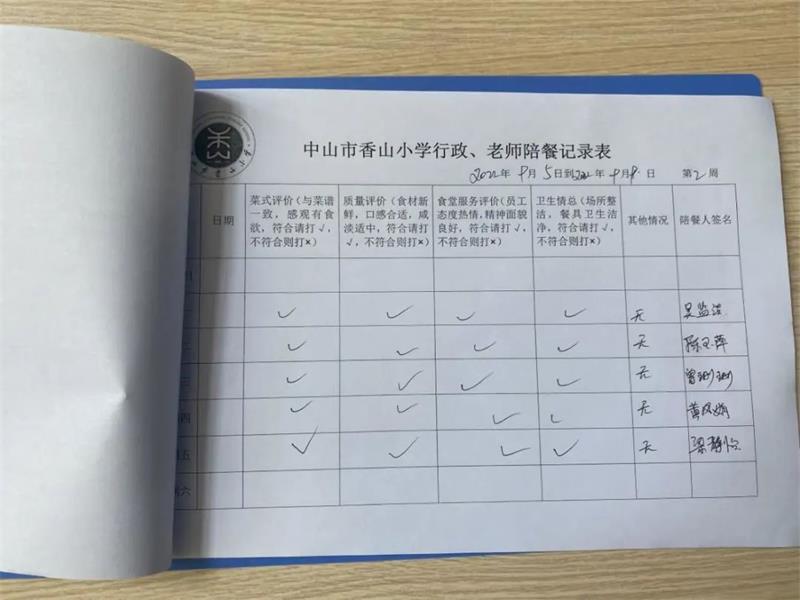 中山市香山小学行政、老师陪餐记录表
2022年 9月 5日到2022年 9月9日 第2周
日期
菜式评价（与菜谱
一致，感观有食
欲，符合请打√，
不符合则打×）
质量评价（食材新
鲜，口感合适，咸
淡适中，符合请打
√，不符合则打×）
食堂服务评价（员工
态度热情，精神面貌
良好，符合请打√，
不符合则打×）
卫生情总（场所整
洁，餐具卫生洁
净，符合请打√，
不符合则打×）
其他情况
陪餐人签名
日
一 √ √ √ √ 无
二 √ √ √ √ 无 陈玉萍
三 √ √ √ √ 无 曾珊珊
四 √ √ √ √ 无
五 √ √ √ √ 无 梁静怡
六